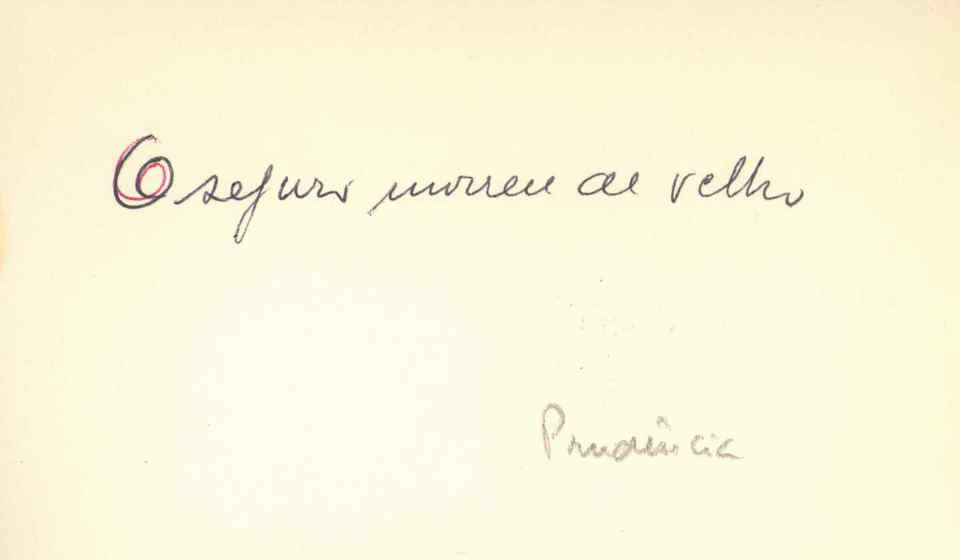 O seguro morreu de velho
Prudência